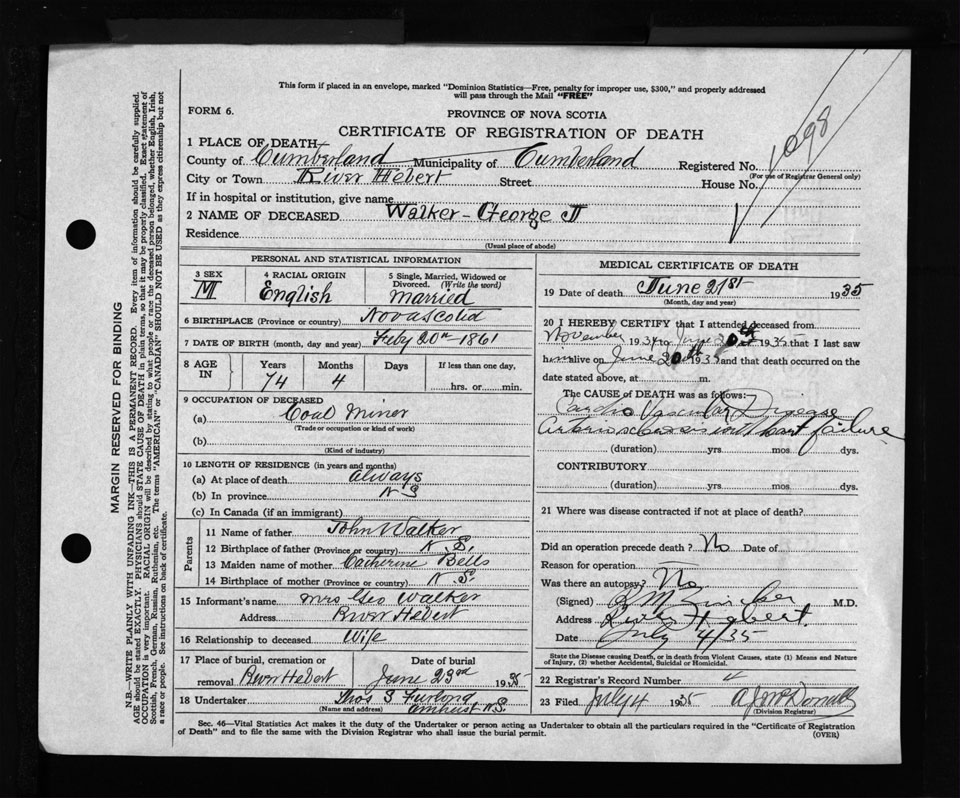 This form if placed in an envelope, marked "Dominion Statistics—Free, penalty for improper use, $300," and properly addressed
will pass through the Mail "FREE"
FORM 6.
PROVINCE OF NOVA SCOTIA
CERTIFICATE OF REGISTRATION OF DEATH
1 PLACE OF DEATH
County of Cumberland Municipality of Cumberland Registered No.
(For use of Registrar General only)
1098
City or Town River Hebert Street House No.
If in hospital or institution, give name
2 NAME OF DECEASED Walker - George J
Residence
(Usual place of abode)
PERSONAL AND STATISTICAL INFORMATION
3 SEX M
4 RACIAL ORIGIN English
5 Single, Married, Widowed or Divorced. (Write the word) Married
6 BIRTHPLACE (Province or country) Nova Scotia
7 DATE OF BIRTH (month, day and year) Feby 20th 1861
8 AGE IN Years 74 Months 4 Days If less than one day, hrs. or min.
9 OCCUPATION OF DECEASED
(a) Coal Miner
(Trade or occupation or kind of work)
(b)
(Kind of industry)
10 LENGTH OF RESIDENCE (in years and months)
(a) At place of death always
(b) In province N S
(c) In Canada (if an immigrant)
Parents
11 Name of father John Walker
12 Birthplace of father (Province or country) N. S.
13 Maiden name of mother Catherine Bells
14 Birthplace of mother (Province or country) N S.
15 Informant's name Mrs Geo Walker
Address River Hebert
16 Relationship to deceased Wife
17 Place of burial, cremation or removal River Hebert
Date of burial June 23rd 1935
18 Undertaker Thos S Furlong
(Name and address) Amherst N.S.
MEDICAL CERTIFICATE OF DEATH
19 Date of death June 21st 1935
(Month, day and year)
20 I HEREBY CERTIFY that I attended deceased from
November 1934 to June 20th 1935 that I last saw
him alive on June 20th 1935 and that death occurred on the
date stated above, at m.
The CAUSE OF DEATH was as follows:
Cardio Vascular Disease
Arteriosclerosis with heart failure
(duration) yrs. mos. dys.
CONTRIBUTORY
(duration) yrs. mos. dys.
21 Where was disease contracted if not at place of death?
Did an operation precede death? No Date of
Reason for operation —
Was there an autopsy? No
(Signed) M.D.
Address River Hebert.
Date July 4/35
State the Disease causing Death, or in death from Violent Causes, state (1) Means and Nature
of Injury, (2) whether Accidental, Suicidal or Homicidal.
22 Registrar's Record Number 4
23 Filed July 4 1935
(Division Registrar)
Sec. 46—Vital Statistics Act makes it the duty of the Undertaker or person acting as Undertaker to obtain all the particulars required in the "Certificate of Registration
of Death" and to file the same with the Division Registrar who shall issue the burial permit.
(OVER)
MARGIN RESERVED FOR BINDING
N.B.—WRITE PLAINLY WITH UNFADING INK—THIS IS A PERMANENT RECORD. Every item of information should be carefully supplied.
AGE should be stated EXACTLY. PHYSICIANS should STATE CAUSE OF DEATH in plain terms, so that it may be properly classified. Exact statement of
OCCUPATION is very important. RACIAL ORIGIN will be described by stating to what people or race the deceased person belonged, whether English, Irish,
Scottish, French, German, Russian, Ruthenian, etc. The terms "AMERICAN" or "CANADIAN" SHOULD NOT BE USED as they express citizenship but not
a race or people. See instructions on back of certificate.